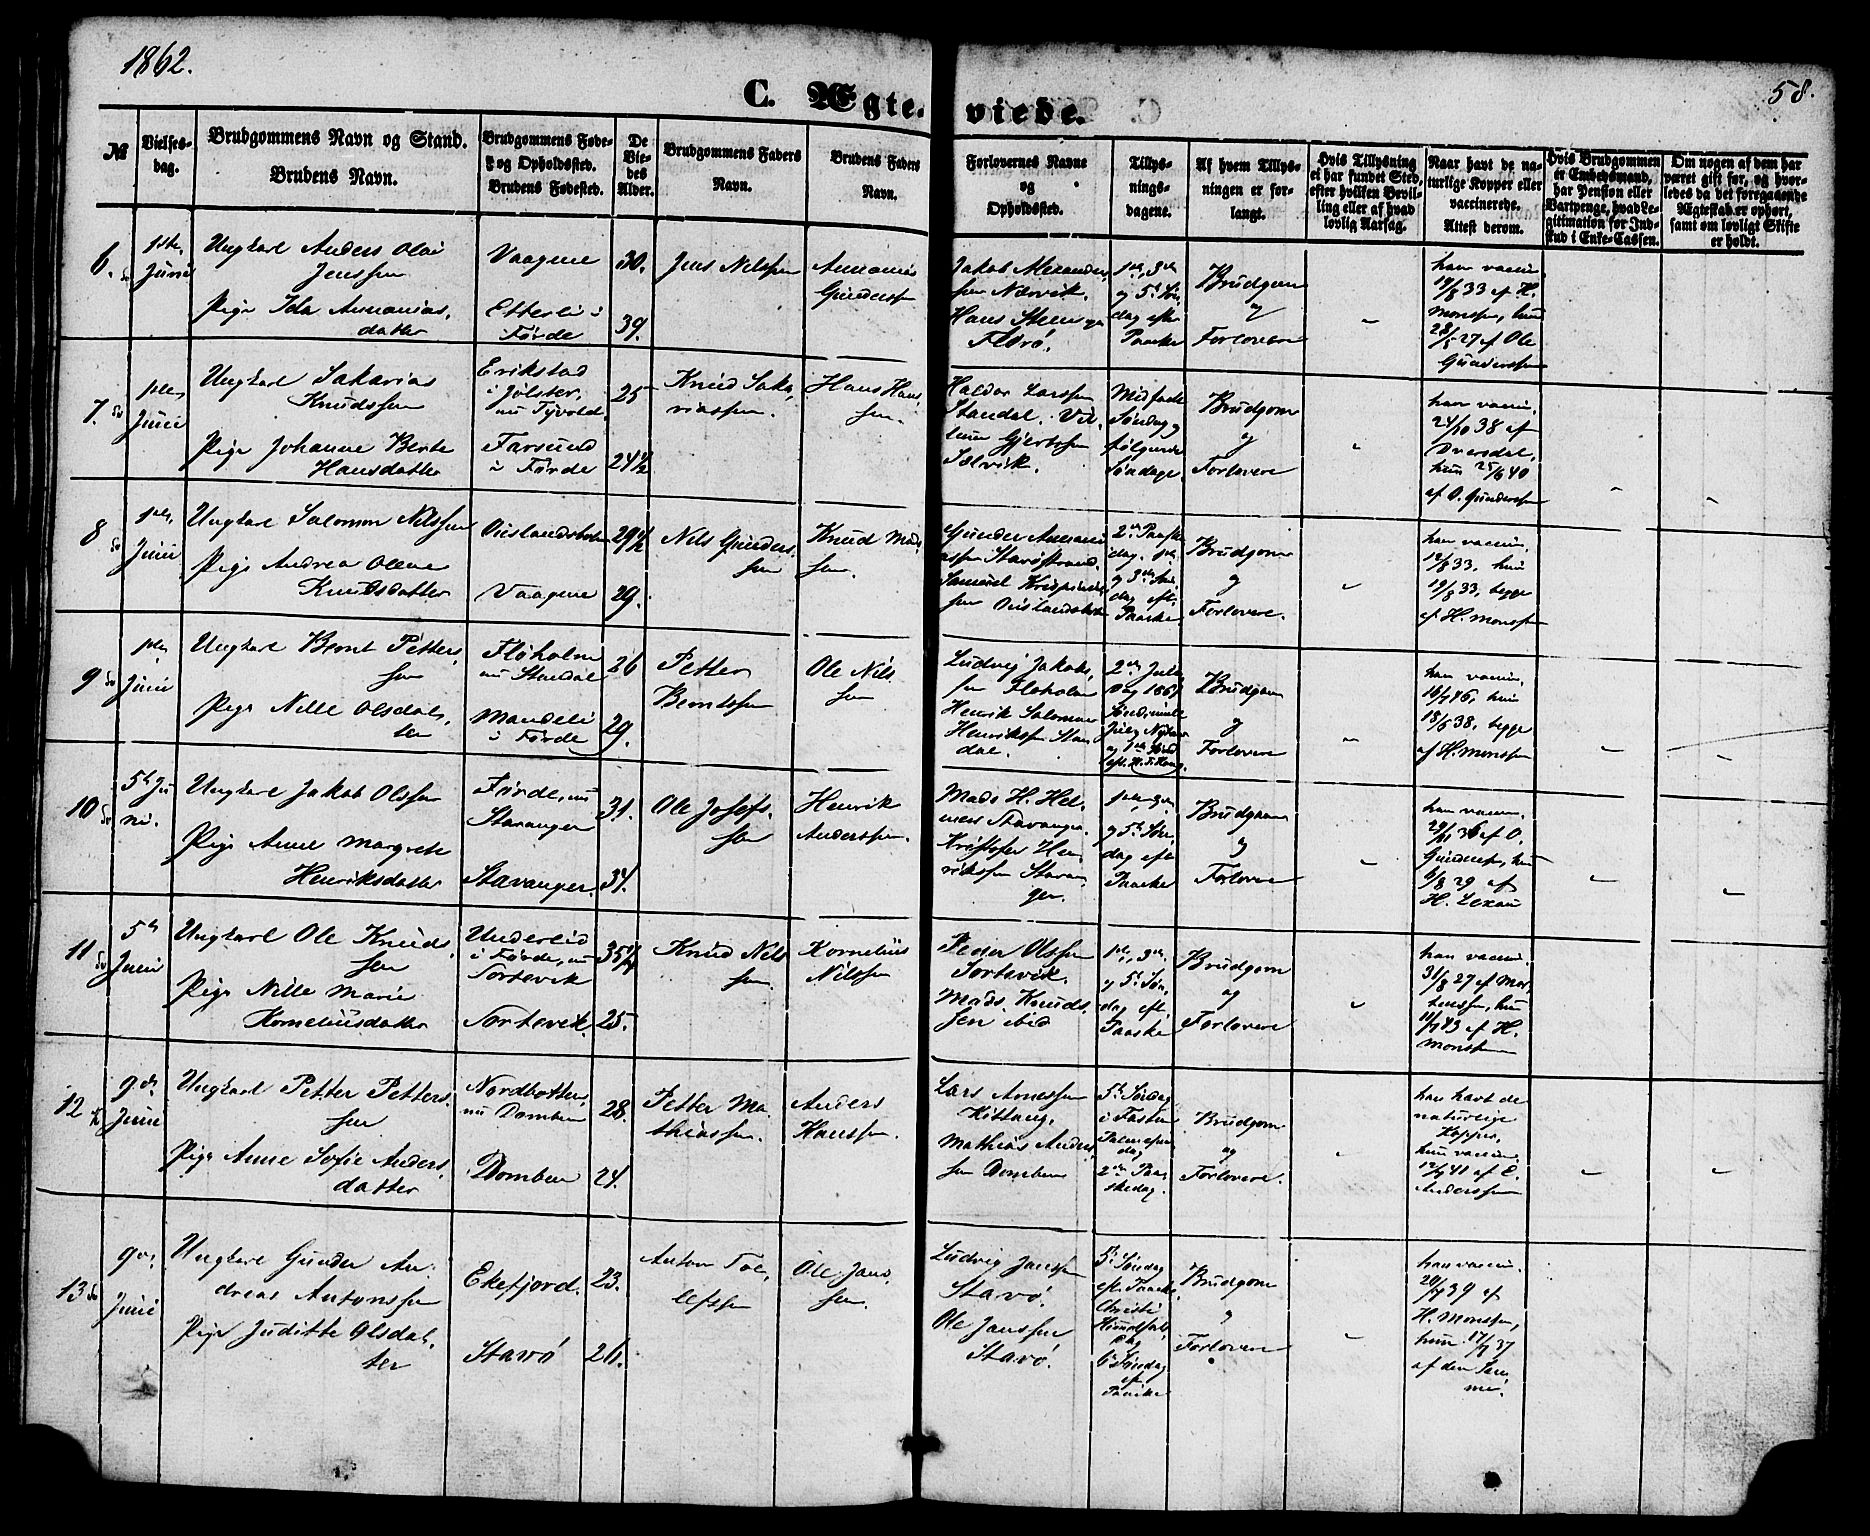 1862.
58.
C. Ægte-viede.
№
Vielses-
dag.
Brudgommens Navn og Stand.
Brudens Navn.
Brudgommens Føde-
og Opholdssted.
Brudens Fødested.
De
Vie-
des
Alder.
Brudgommens Faders
Navn.
Brudens Faders
Navn.
Forlovernes Navne
og
Opholdssted.
Tillys-
nings-
dagene.
Af hvem Tillys-
ningen er for-
langt.
Hvis Tillysning
ei har fundet Sted,
efter hvilken Bevil-
ling eller af hvad
lovlig Aarsag.
Naar havt de na-
turlige Kopper eller
vaccinerede.
Attest derom.
Hvis Brudgommen
er Embedsmand,
har Pension eller
Vartpenge, hvad Le-
gitimation for Ind-
skud i Enke-Cassen.
Om nogen af dem har
været gift før, og hvor-
ledes da det foregaaende
Ægteskab er ophørt,
samt om lovligt Skifte
er holdt.
6.
1ste
Juni
Ungkarl Anders Olai
Jenssen
Pige Ida Ananias,
datter
Vaagene
Etterli i
Førde
30.
39.
Jens Nilssen
Ananias
Gunderssen
Jakob Alexander,
sen Nærvik.
Hans Steen
Florø.
1ste, 3die
og 5te Søn,
dag efter
Paaske
Brudgom
og
Forlovere
han vaccin.
19/8 33 af H.
Monssen, hun
28/5 27 af Ole
Gunderssen
7.
1ste
Juni
Ungkarl Sakarias
Knudssen
Pige Johanne Berte
Hansdatter
Erikstad
i Jølster,
nu Tyvold
Farsund
i Førde
25
24½
Knud Saka,
riassen.
Hans Hans,
sen.
Haldor Larssen
Standal. Vil-
lum Gjertssen
Sælvik.
Midfaste
Søndag og
følgende
Søndage.
Brudgom
og
Forlovere
han vaccin.
24/10 38 af
Øversdal,
hun 25/9 40
af O. Gunderssen
8
1ste
Juni
Ungkarl Salomon Nilssen
Pige Andrea Olene
Knudsdatter
Vaagene
29½
29.
Nils Gunders,
sen
Knud Mads
sen.
2den Paaske
dag, 1ste
og 3die Søn,
dag eft.
Paaske
Brudgom
og
Forlovere.
han vaccin.
12/8 33, hun
19/8 33, begge
af H. Monssen
9
1ste
Juni
Ungkarl Bernt Petters,
sen
Pige Nille Olsdat,
ter
Floholm
nu Standal
Mandeli
i Førde
26
29.
Petter
Berntssen
Ole Nils
sen
Ludvig Jakobs,
sen Floholm
Henrik Salomon
Henrikssen Stan
dal.
2den Jule
dag 1861
Brudgom
og
Forlovere
han vaccin.
16/7 46, hun
18/6 38, begge
af H. Monssen
10
5te Ju
ni.
Ungkarl Jakob Olssen
Pige Anne Margrete
Henriksdatter
Førde, nu
Stavanger
Stavanger.
31.
34.
Ole Josefs,
sen
Henrik
Anderssen.
Mads H. Hel-
mers Stavanger.
Kristofer Hen
rikssen Stavan
ger.
1ste 3die
og 5te Søn
dag eft.
Paaske
Brudgom
og
Forlovere
han vaccin.
29/11 36 af O.
Gunderss, hun
6/8 29 af
H. Lexau
11
5te
Juni
Ungkarl Ole Knuds,
sen
Pige Nille Marie
Korneliusdatter
Underlid
i Førde, nu
Sortevik
Sortevik.
35¼
25.
Knud Nils
sen.
Kornelius
Nilssen
Peder Olssen
Sortevik.
Mads Knuds,
sen ibid
1ste, 3die
og 5te Søn,
dag eft.
Paaske
Brudgom
og
Forlovere
han vaccin.
31/8 27 af Mor,
tenssen, hun
11/7 43 af H.
Monssen
12
9de
Juni
Ungkarl Petter Petters,
sen
Pige Anne Sofie Anders,
datter
Nordbotten,
nu Domben
Domben
28.
24.
Petter Ma,
thiassen.
Anders
Hanssen.
Lars Arnessen
Kittang,
Mathias Anders,
sen Domben
5te Søndag
i Fasten
Palmesøn
dag
2den Paa,
skedag.
Brudgom
og
Forlovere.
han havt de
naturlige
Kopper,
hun vaccin.
12/9 41 af E.
Anderssen
13
9de
Juni
Ungkarl Gunder An,
dreas Antonssen
Pige Juditte Olsdat,
ter
Ekefjord.
Stavø
23.
26.
Anton Tol,
lefssen
Ole Jans,
sen.
Ludvig Janssen
Stavø.
Ole Janssen
Stavø.
5te Søndag
eft. Paaske
Christi
Himmelfart,
dag
6te Søndag
eft.
Paaske
Brudgom
og
Forlovere
han vaccin.
20/7 39 af
H. Monssen,
hun 17/7 37
af den Sam,
me.